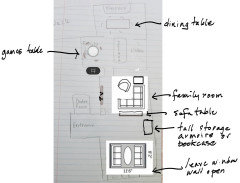 dining table
games table
family room
sofa table
tall storage
armoire or
bookcase
Entrance
leave window
wall open